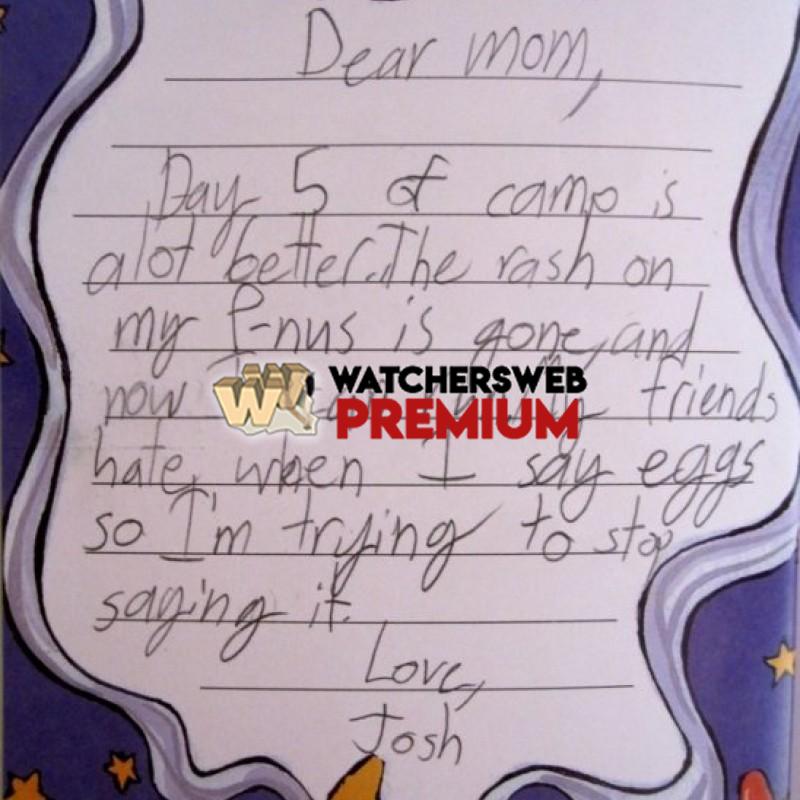 Dear mom,
Day 5 of camp is
alot better. The rash on
my P-nus is gone, and
now friends
hate when I say eggs
so I'm trying to stop
saying it.
Love,
Josh
WATCHERSWEB
PREMIUM